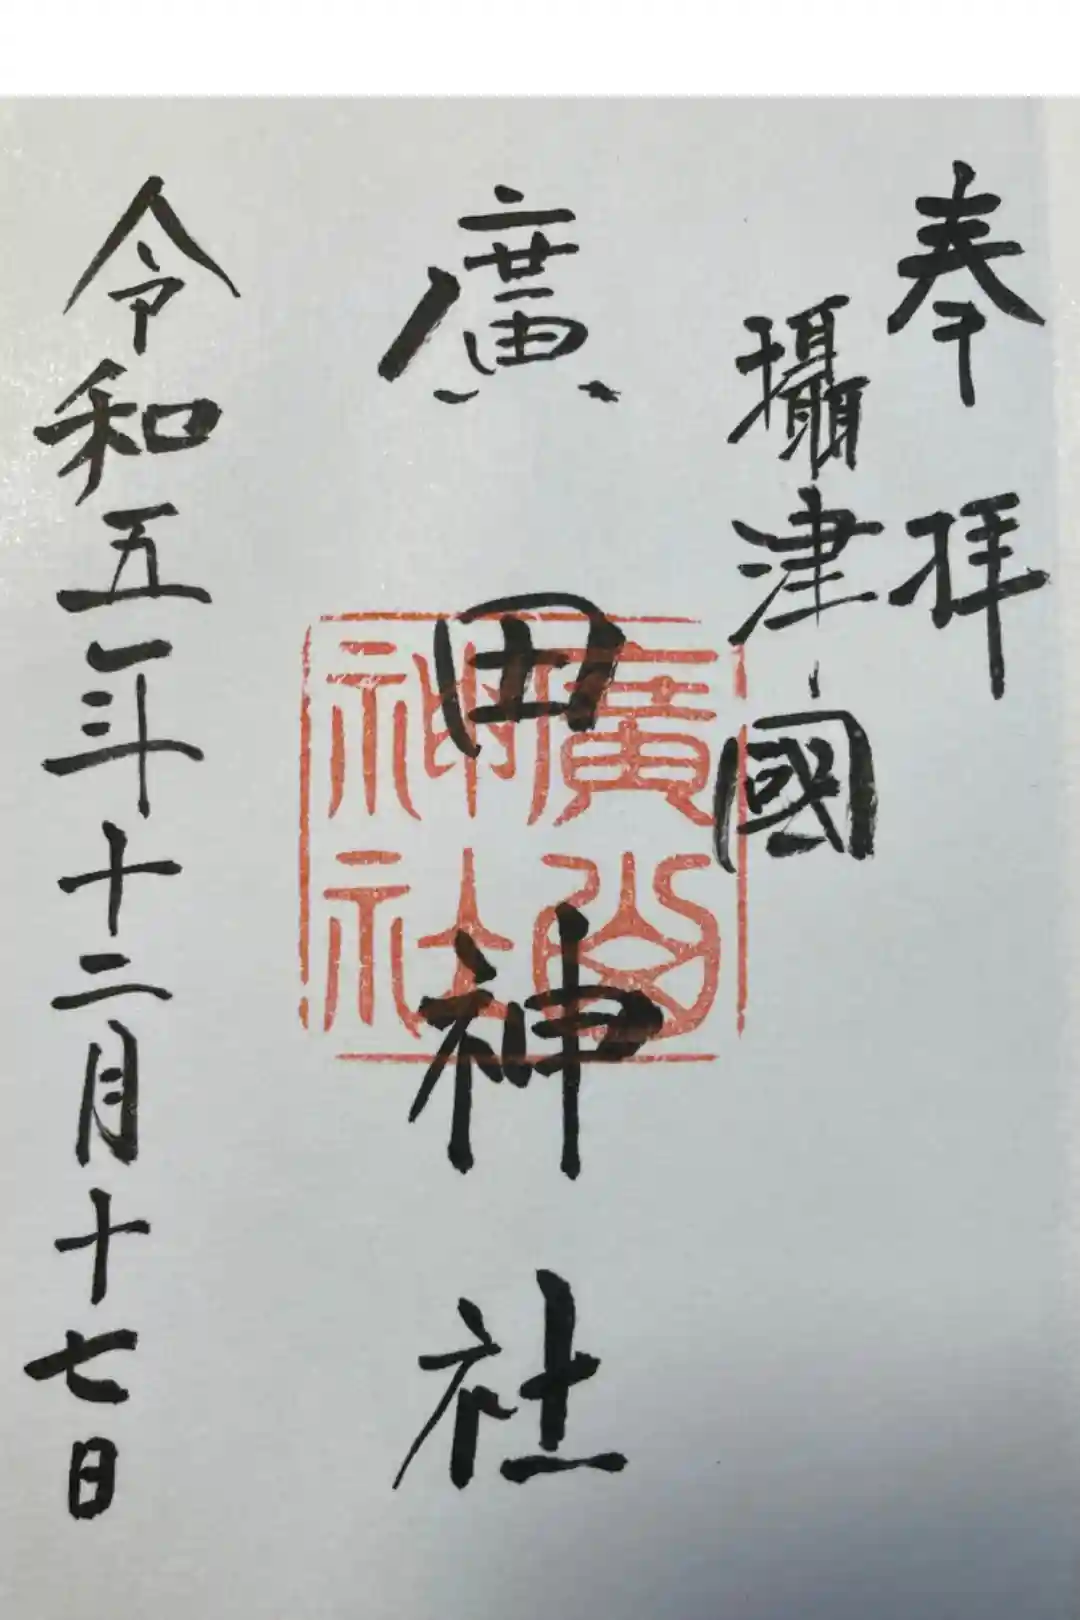 奉拝
攝津國
廣田神社
廣田神社
令和五年十二月十七日